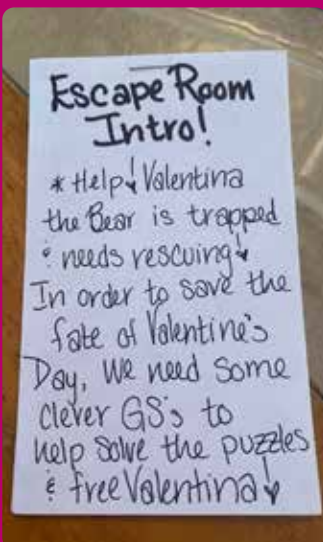 Escape Room
Intro!
* Help! Valentina
the Bear is trapped
& needs rescuing!
In order to save the
fate of Valentine's
Day, we need some
clever GS's to
help solve the puzzles
& free Valentina!